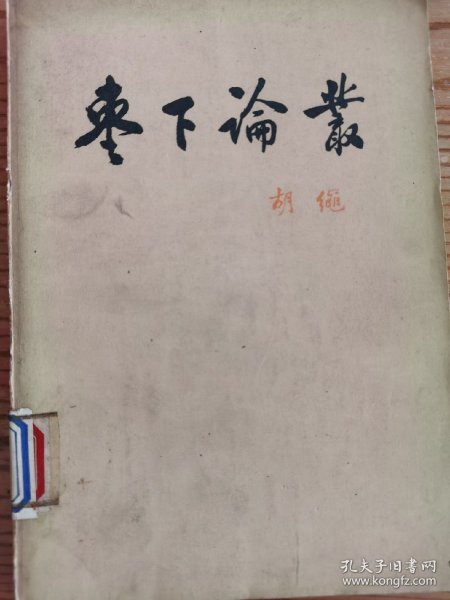 棗下論叢
胡繩
孔夫子旧书网
www.kongfz.com